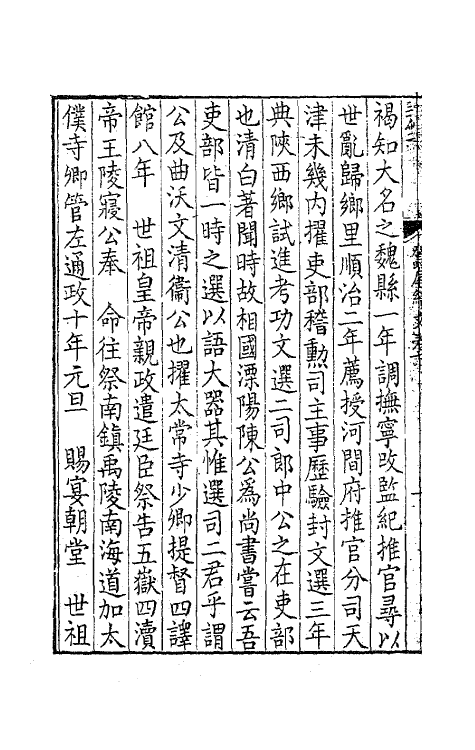 褐知大名之魏縣一年調撫寧改監紀推官尋以
世亂歸鄉里順治二年薦授河間府推官分司天
津未幾内擢吏部稽勲司主事歷驗封文選三年
典陜西鄉試進考功文選二司郎中公之在吏部
也清白著聞時故相國溧陽陳公爲尚書嘗云吾
吏部皆一時之選以語大器其惟選司二君乎謂
公及曲沃文清衞公也擢太常寺少卿提督四譯
館八年　世祖皇帝親政遣廷臣祭告五嶽四瀆
帝王陵寢公奉　命往祭南鎮禹陵南海道加太
僕寺卿管左通政十年元旦　賜宴朝堂　世祖